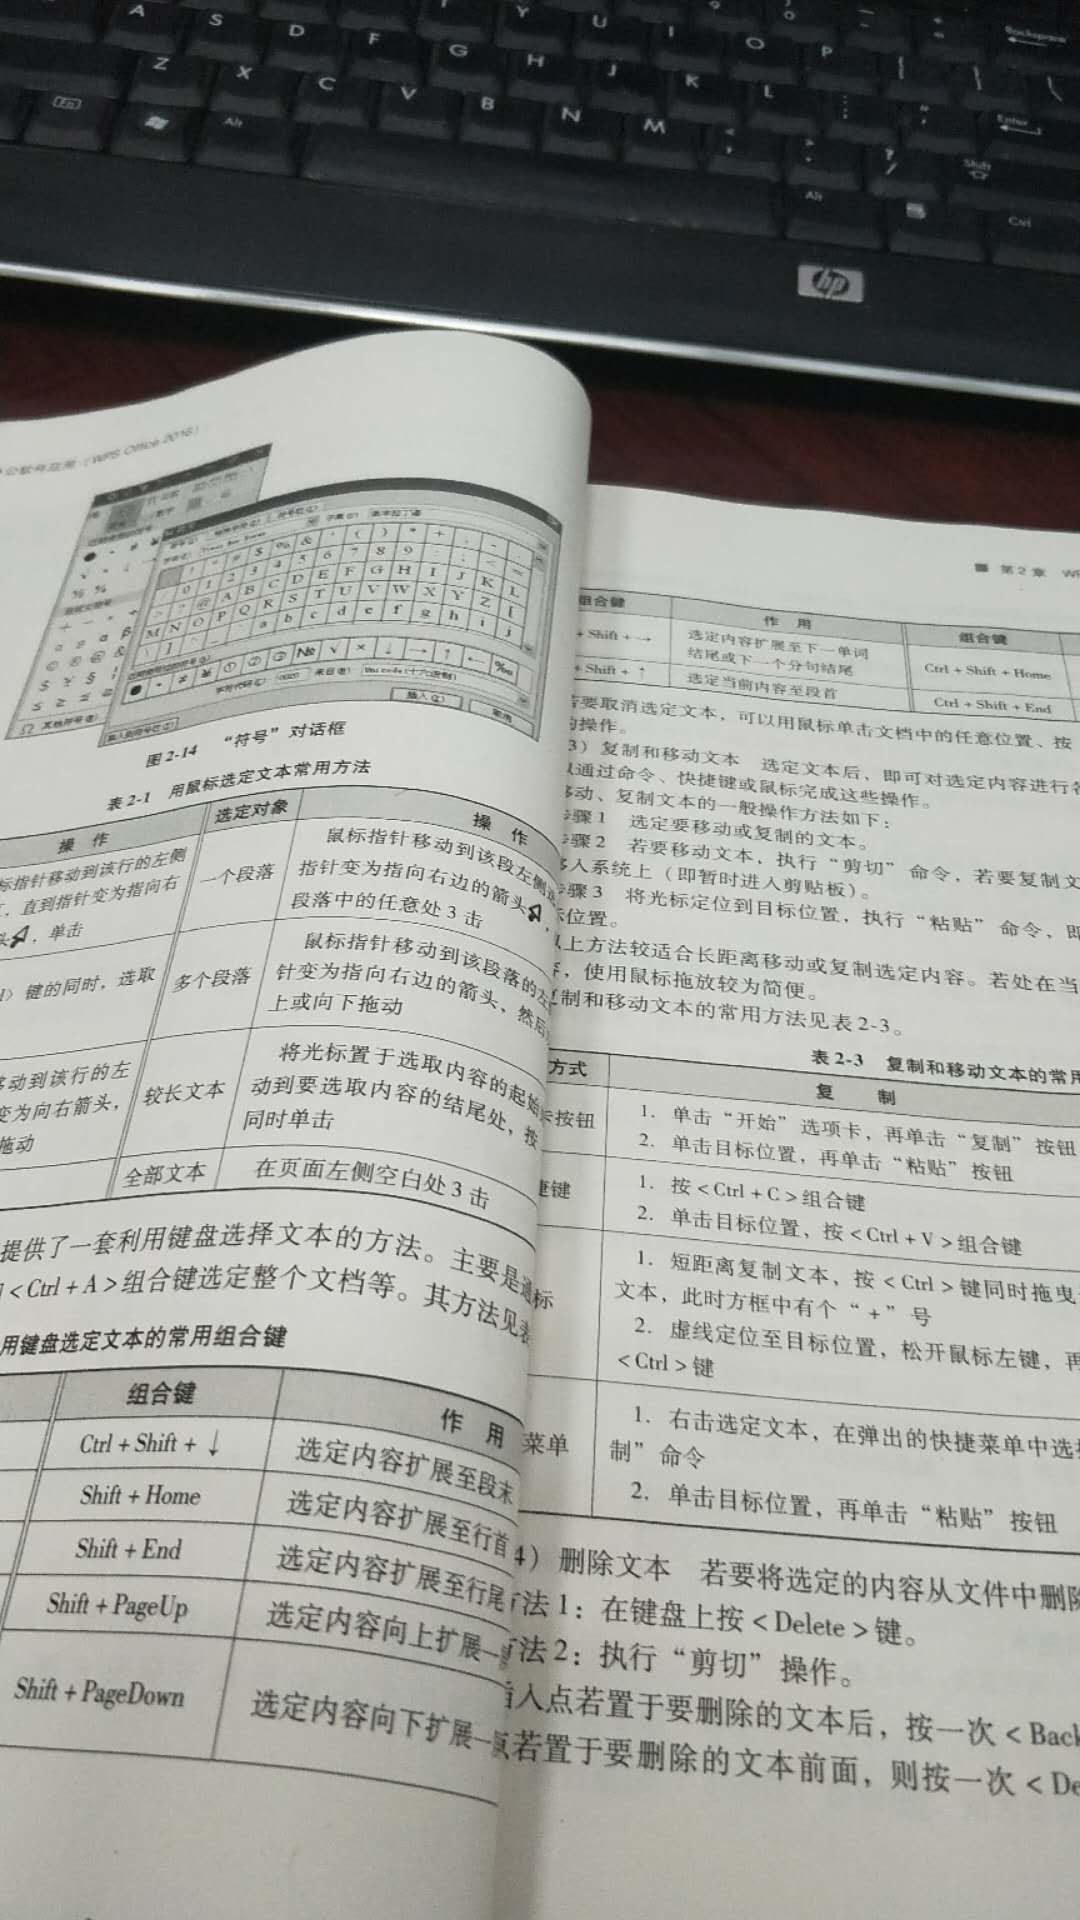 A S D F G H J K L
Z X C V B N M
Y U I O P
Backspace
Enter
Shift
Fn
Alt
Alt
Ctrl
hp
公软件应用（WPS Office 2016）
图 2-14 “符号”对话框
表 2-1 用鼠标选定文本常用方法
操 作
选定对象
操 作
标指针移动到该行的左侧
，直到指针变为指向右
，单击
一个段落
鼠标指针移动到该段左侧
指针变为指向右边的箭头，
段落中的任意处 3 击
键的同时，选取
多个段落
鼠标指针移动到该段落的左
针变为指向右边的箭头，然后
上或向下拖动
移动到该行的左
变为向右箭头，
拖动
较长文本
将光标置于选取内容的起始
动到要选取内容的结尾处，按
同时单击
全部文本
在页面左侧空白处 3 击
提供了一套利用键盘选择文本的方法。主要是通
<Ctrl + A>组合键选定整个文档等。其方法见表
用键盘选定文本的常用组合键
组合键
作 用
Ctrl + Shift + ↓
选定内容扩展至段末
Shift + Home
选定内容扩展至行首
Shift + End
选定内容扩展至行尾
Shift + PageUp
选定内容向上扩展一
Shift + PageDown
选定内容向下扩展一
■ 第 2 章 WP
组合键
作 用
组合键
+ Shift + →
选定内容扩展至下一单词
结尾或下一个分句结尾
Ctrl + Shift + Home
+ Shift + ↑
选定当前内容至段首
Ctrl + Shift + End
若要取消选定文本，可以用鼠标单击文档中的任意位置、按
的操作。
3）复制和移动文本 选定文本后，即可对选定内容进行各
以通过命令、快捷键或鼠标完成这些操作。
移动、复制文本的一般操作方法如下：
步骤 1 选定要移动或复制的文本。
步骤 2 若要移动文本，执行“剪切”命令，若要复制文
移入系统上（即暂时进入剪贴板）。
步骤 3 将光标定位到目标位置，执行“粘贴”命令，即
标位置。
以上方法较适合长距离移动或复制选定内容。若处在当
，使用鼠标拖放较为简便。
复制和移动文本的常用方法见表 2-3。
表 2-3 复制和移动文本的常用
方式
复 制
卡按钮
1. 单击“开始”选项卡，再单击“复制”按钮
2. 单击目标位置，再单击“粘贴”按钮
捷键
1. 按<Ctrl + C>组合键
2. 单击目标位置，按<Ctrl + V>组合键
标
1. 短距离复制文本，按<Ctrl>键同时拖曳
文本，此时方框中有个“+”号
2. 虚线定位至目标位置，松开鼠标左键，再
<Ctrl>键
菜单
1. 右击选定文本，在弹出的快捷菜单中选
制”命令
2. 单击目标位置，再单击“粘贴”按钮
4）删除文本 若要将选定的内容从文件中删除
方法 1：在键盘上按<Delete>键。
方法 2：执行“剪切”操作。
插入点若置于要删除的文本后，按一次<Back
若置于要删除的文本前面，则按一次<De